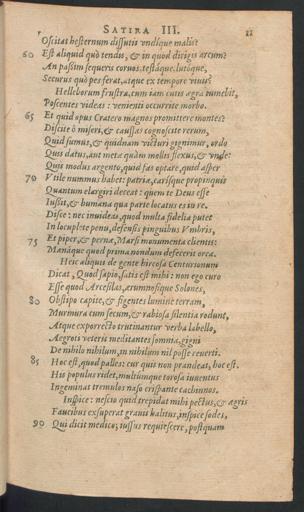 SATIRA III. 11
Oscitas hesternum dissutis vndique malis?
60 Est aliquid quò tendis, & in quod dirigis arcum?
An passim sequeris coruos, testáque, lutóque,
Securus quò pes ferat, atque ex tempore viuis?
Helleborum frustra, cum iam cutis ægra tumebit,
Poscentes videas: venienti occurrite morbo.
65 Et quid opus Cratero magnos promittere montes?
Discite ô miseri, & caussas cognoscite rerum,
Quid sumus, & quidnam victuri gignimur, ordo
Quis datus, aut metæ quàm mollis flexus, & vnde:
Quis modus argento, quid fas optare, quid asper
70 Vtile nummus habet: patriæ, carísque propinquis
Quantum elargiri deceat: quem te Deus esse
Iussit, & humana qua parte locatus es in re.
Disce: nec inuideas, quod multa fidelia putet
In locuplete penu, defensis pinguibus Vmbris,
75 Et piper, & pernæ, Marsi monumenta clientis:
Mænáque quod prima nondum defecerit orca.
Heic aliquis de gente hircosa Centurionum
Dicat, Quod sapio, satis est mihi: non ego curo
Esse quod Arcesilas, ærumnosique Solones,
80 Obstipo capite, & figentes lumine terram,
Murmura cum secum, & rabiosa silentia rodunt,
Atque exporrecto trutinantur verba labello,
Aegroti veteris meditantes somnia, gigni
De nihilo nihilum, in nihilum nil posse reuerti.
85 Hoc est, quod palles: cur quis non prandeat, hoc est.
His populus ridet, multúmque torosa iuuentus
Ingeminat tremulos naso crispante cachinnos.
Inspice: nescio quid trepidat mihi pectus, & ægris
Faucibus exsuperat grauis halitus, inspice sodes,
90 Qui dicit medico; iussus requiescere, postquam